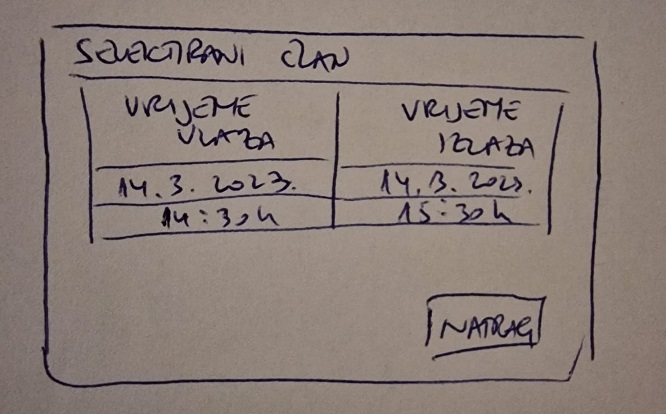 SELEKTIRANI ČLAN
VRIJEME VRIJEME
ULAZA IZLAZA
14.3.2023. 14.3.2023.
14:30h 15:30h
NATRAG